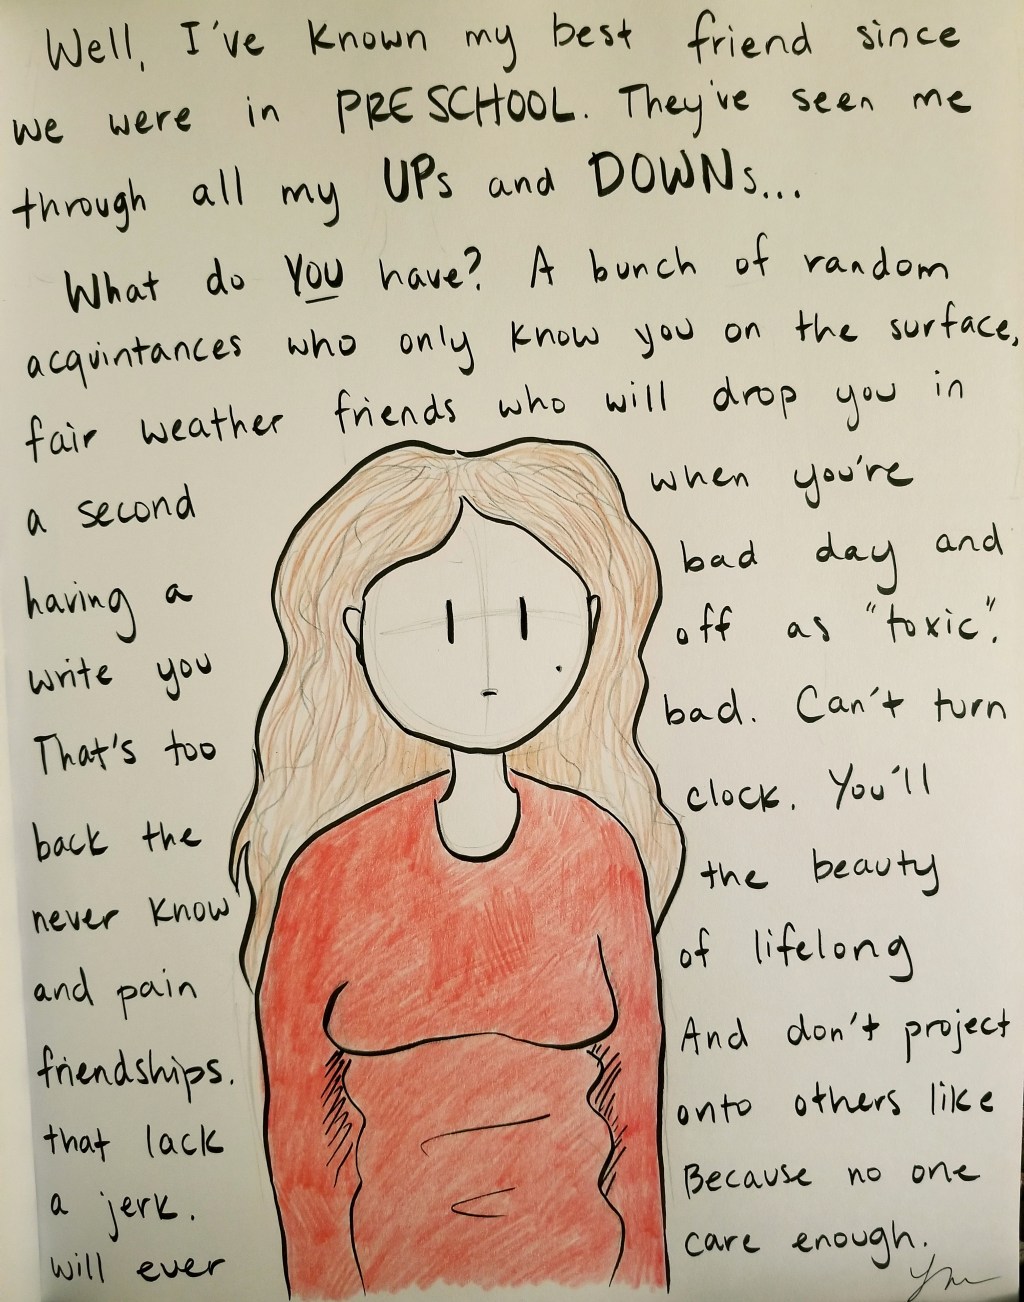 Well, I've known my best friend since
we were in PRESCHOOL. They've seen me
through all my UPs and DOWNs...
What do YOU have? A bunch of random
acquintances who only know you on the surface,
fair weather friends who will drop you in
a second when you're
having a bad day and
write you off as "toxic".
That's too bad. Can't turn
back the clock. You'll
never know the beauty
and pain of lifelong
friendships. And don't project
that lack onto others like
a jerk. Because no one
will ever care enough.